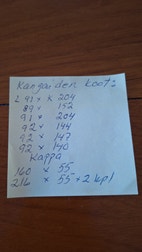 Kangaiden koot:
L 91 x K 204
89 x 152
91 x 204
92 x 144
92 x 147
92 x 140
Kappa
160 x 55
216 x 55 + 2 kpl